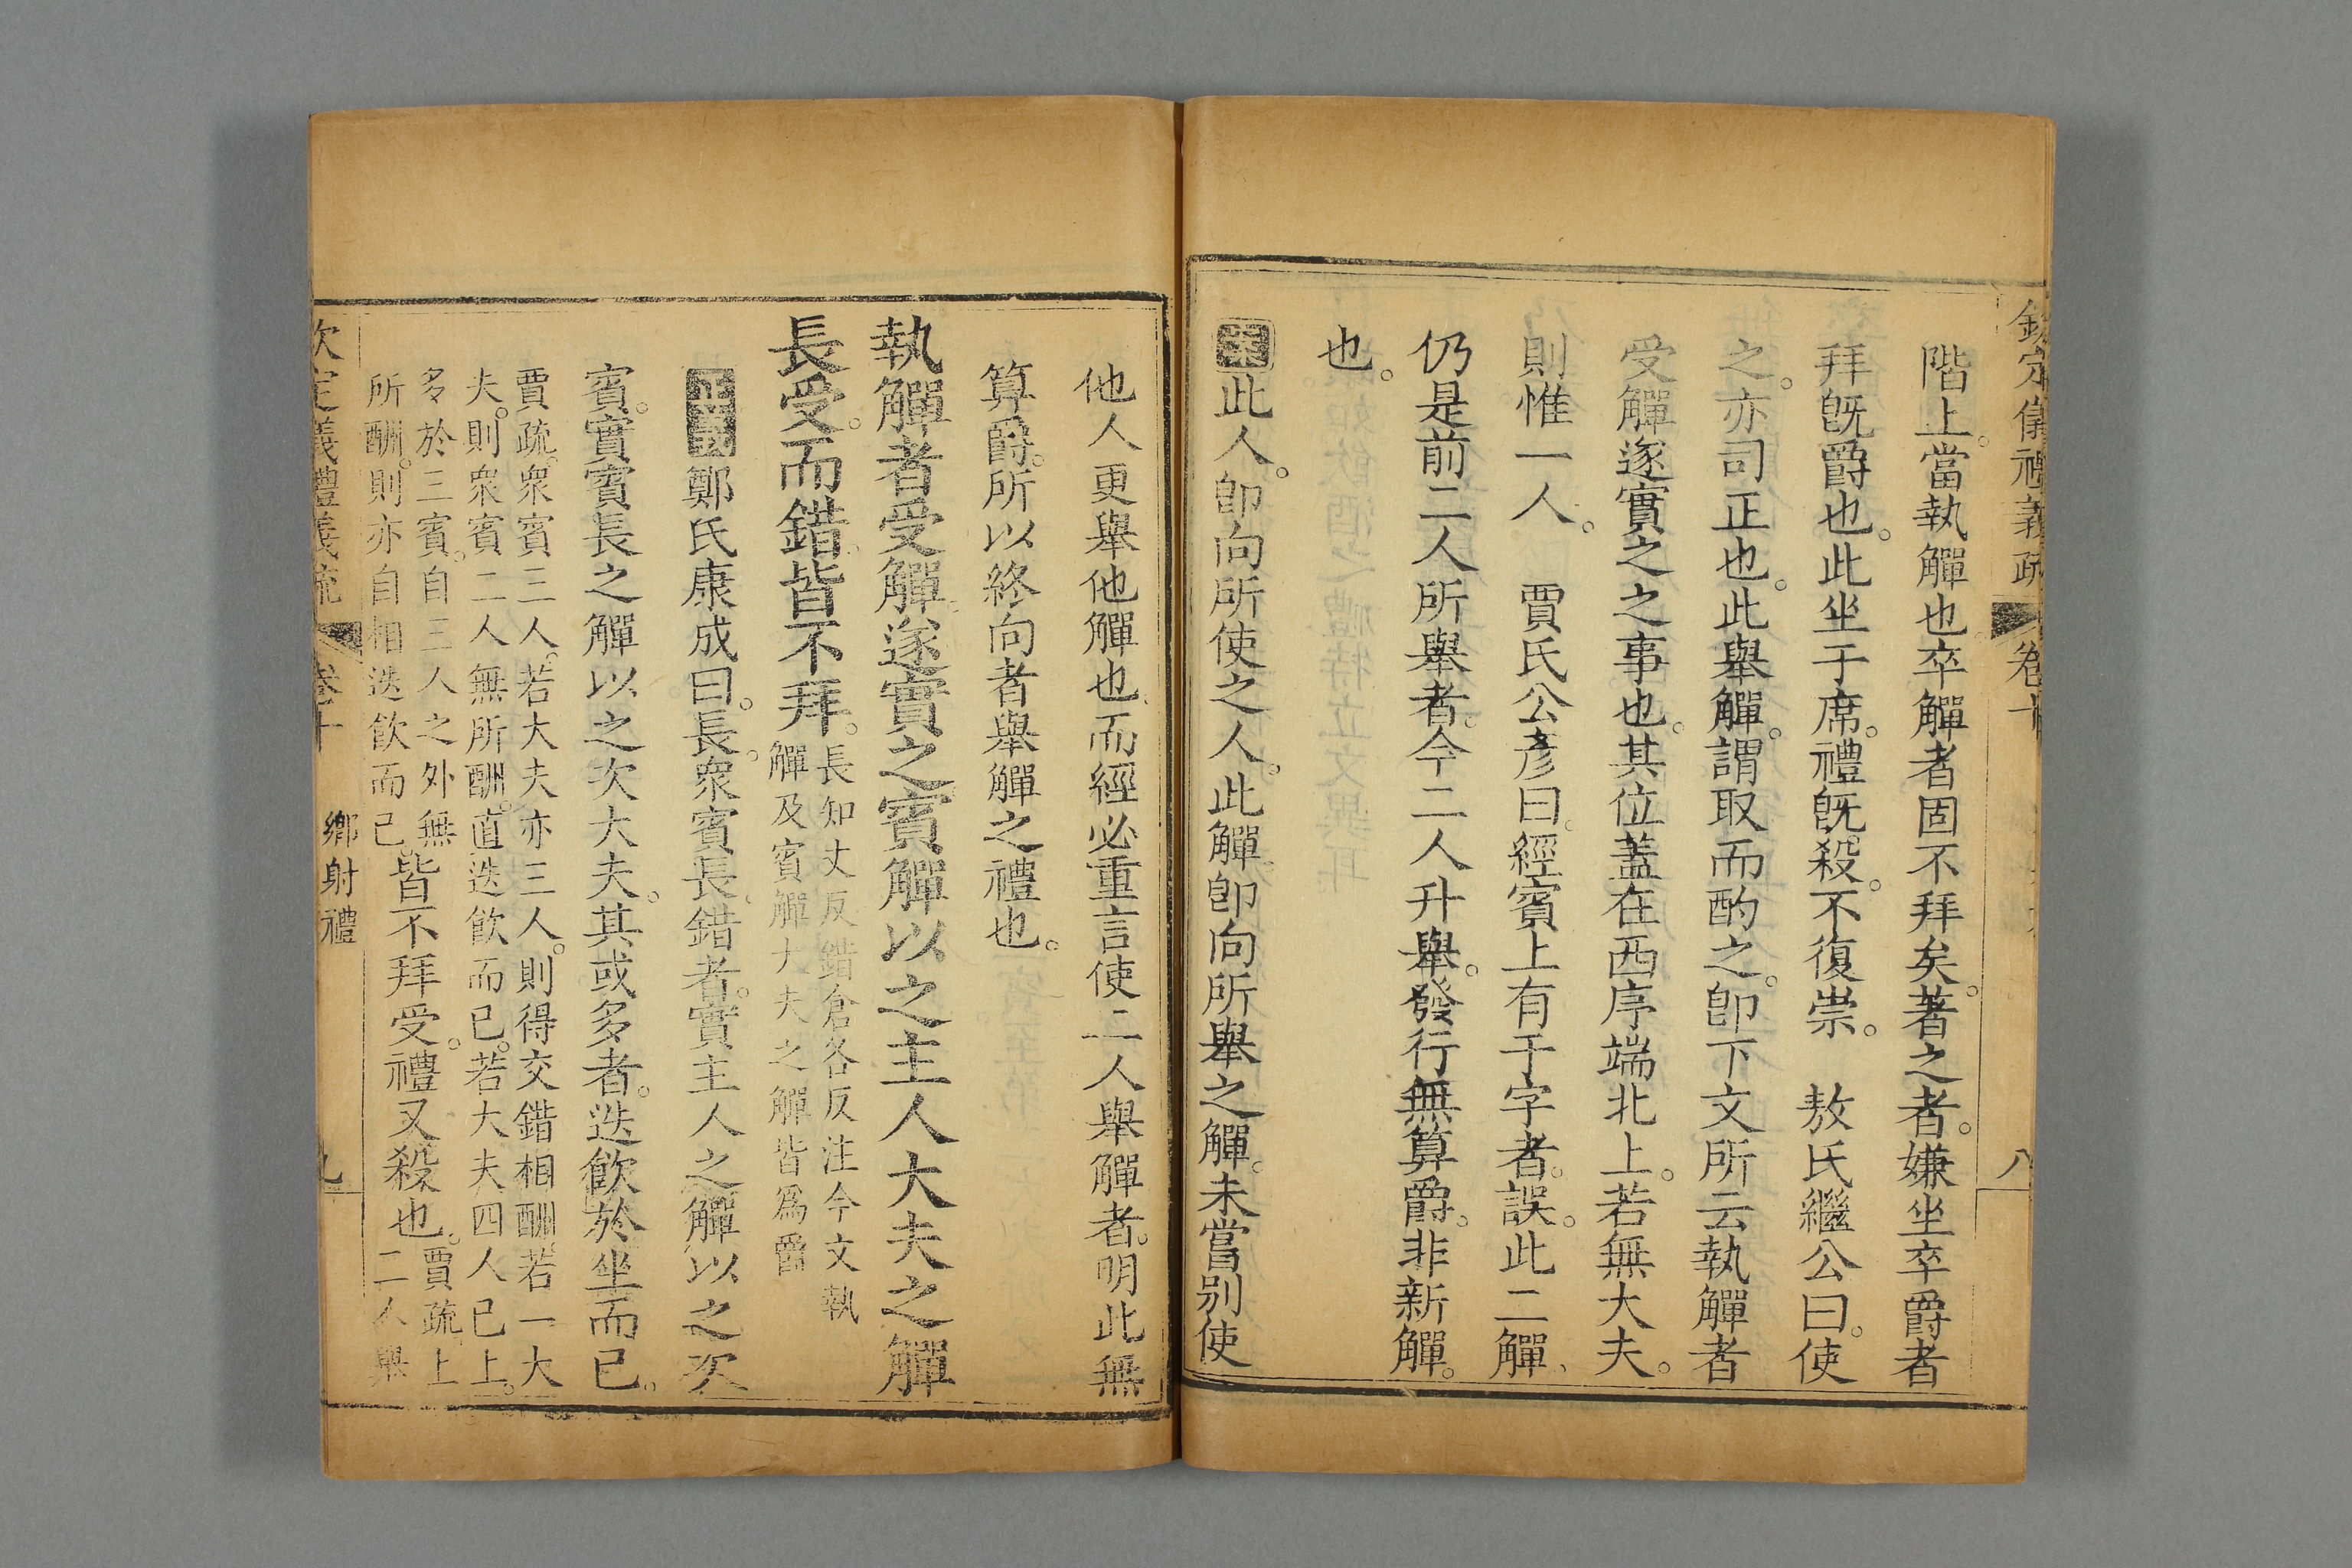 欽定儀禮義疏　卷十　八
階上。當執觶也。卒觶者固不拜矣。著之者。嫌坐卒爵者
拜旣爵也。此坐于席。禮旣殺。不復崇。　敖氏繼公曰。使
之。亦司正也。此舉觶。謂取而酌之。卽下文所云執觶者
受觶遂實之之事也。其位蓋在西序端北上。若無大夫。
則惟一人。　賈氏公彥曰。經賓上有于字者。誤。此二觶、
仍是前二人所舉者。今二人升舉。發行無算爵。非新觶。
也。
案此人。卽向所使之人。此觶。卽向所舉之觶。未嘗别使
他人更舉他觶也、而經必重言使二人舉觶者。明此無
算爵。所以終向者舉觶之禮也。
執觶者受觶。遂實之。賓觶以之主人。大夫之觶
長受。而錯。皆不拜。長知丈反錯倉各反注今文執
觶及賓觶大夫之觶皆爲爵
鄭氏康成曰。長。衆賓長。錯者。實主人之觶以之次
賓。實賓長之觶以之次大夫。其或多者。迭飮於坐而已。
賈疏。衆賓三人。若大夫亦三人。則得交錯相酬。若一大
夫。則衆賓二人無所酬。直迭飮而已。若大夫四人已上。
多於三賓。自三人之外無
所酬。則亦自相迭飮而已。皆不拜受。禮又殺也。賈疏。上
二人舉
欽定儀禮義疏　卷十　鄉射禮　九